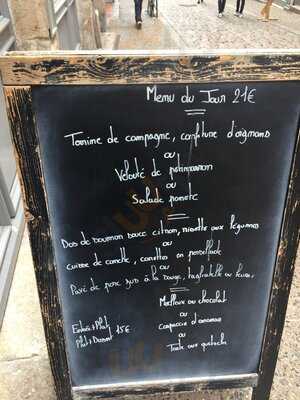 Menu du Jour 21€
Terrine de campagne, confiture d'oignons
ou
Velouté de potimarron
ou
Salade
Dos de saumon sauce citron, risotto aux légumes
ou
cuisse de canette, carottes en persillade
ou
Pavé de porc jus à la sauge, tagliatelle au
Moelleux au chocolat
ou
Entrée+Plat
15€
Plat+Dessert
Carpaccio d'ananas
ou
Tarte aux